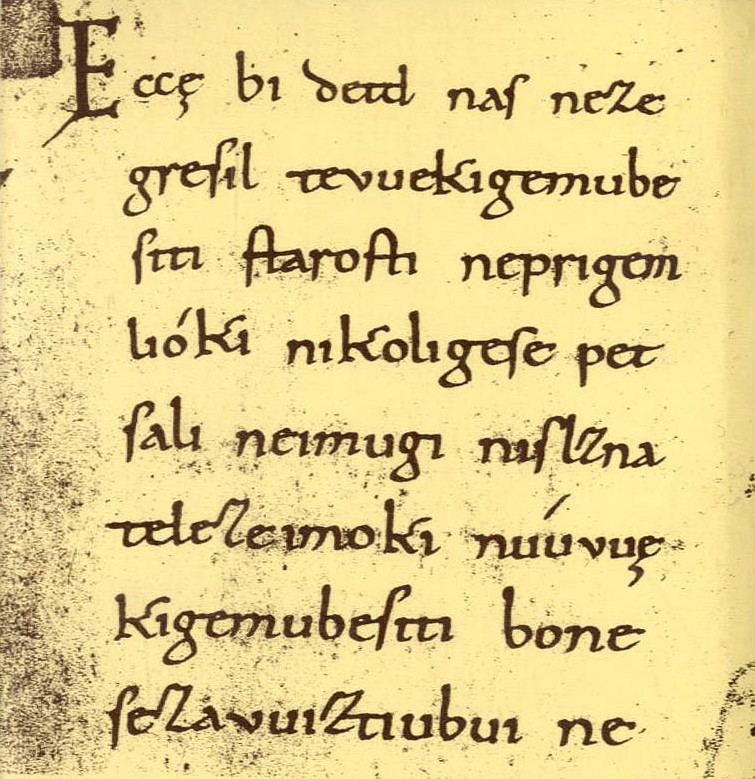 Eccę bi detd naſ neze
greſil tevuekigemube
ſiti ſtaroſti neprigem
lióki nikoligeſe pet
ſali neimugi niſlzna
telezeimoki nuúvuę
kigemubeſiti bone
ſezavuiztiubui ne